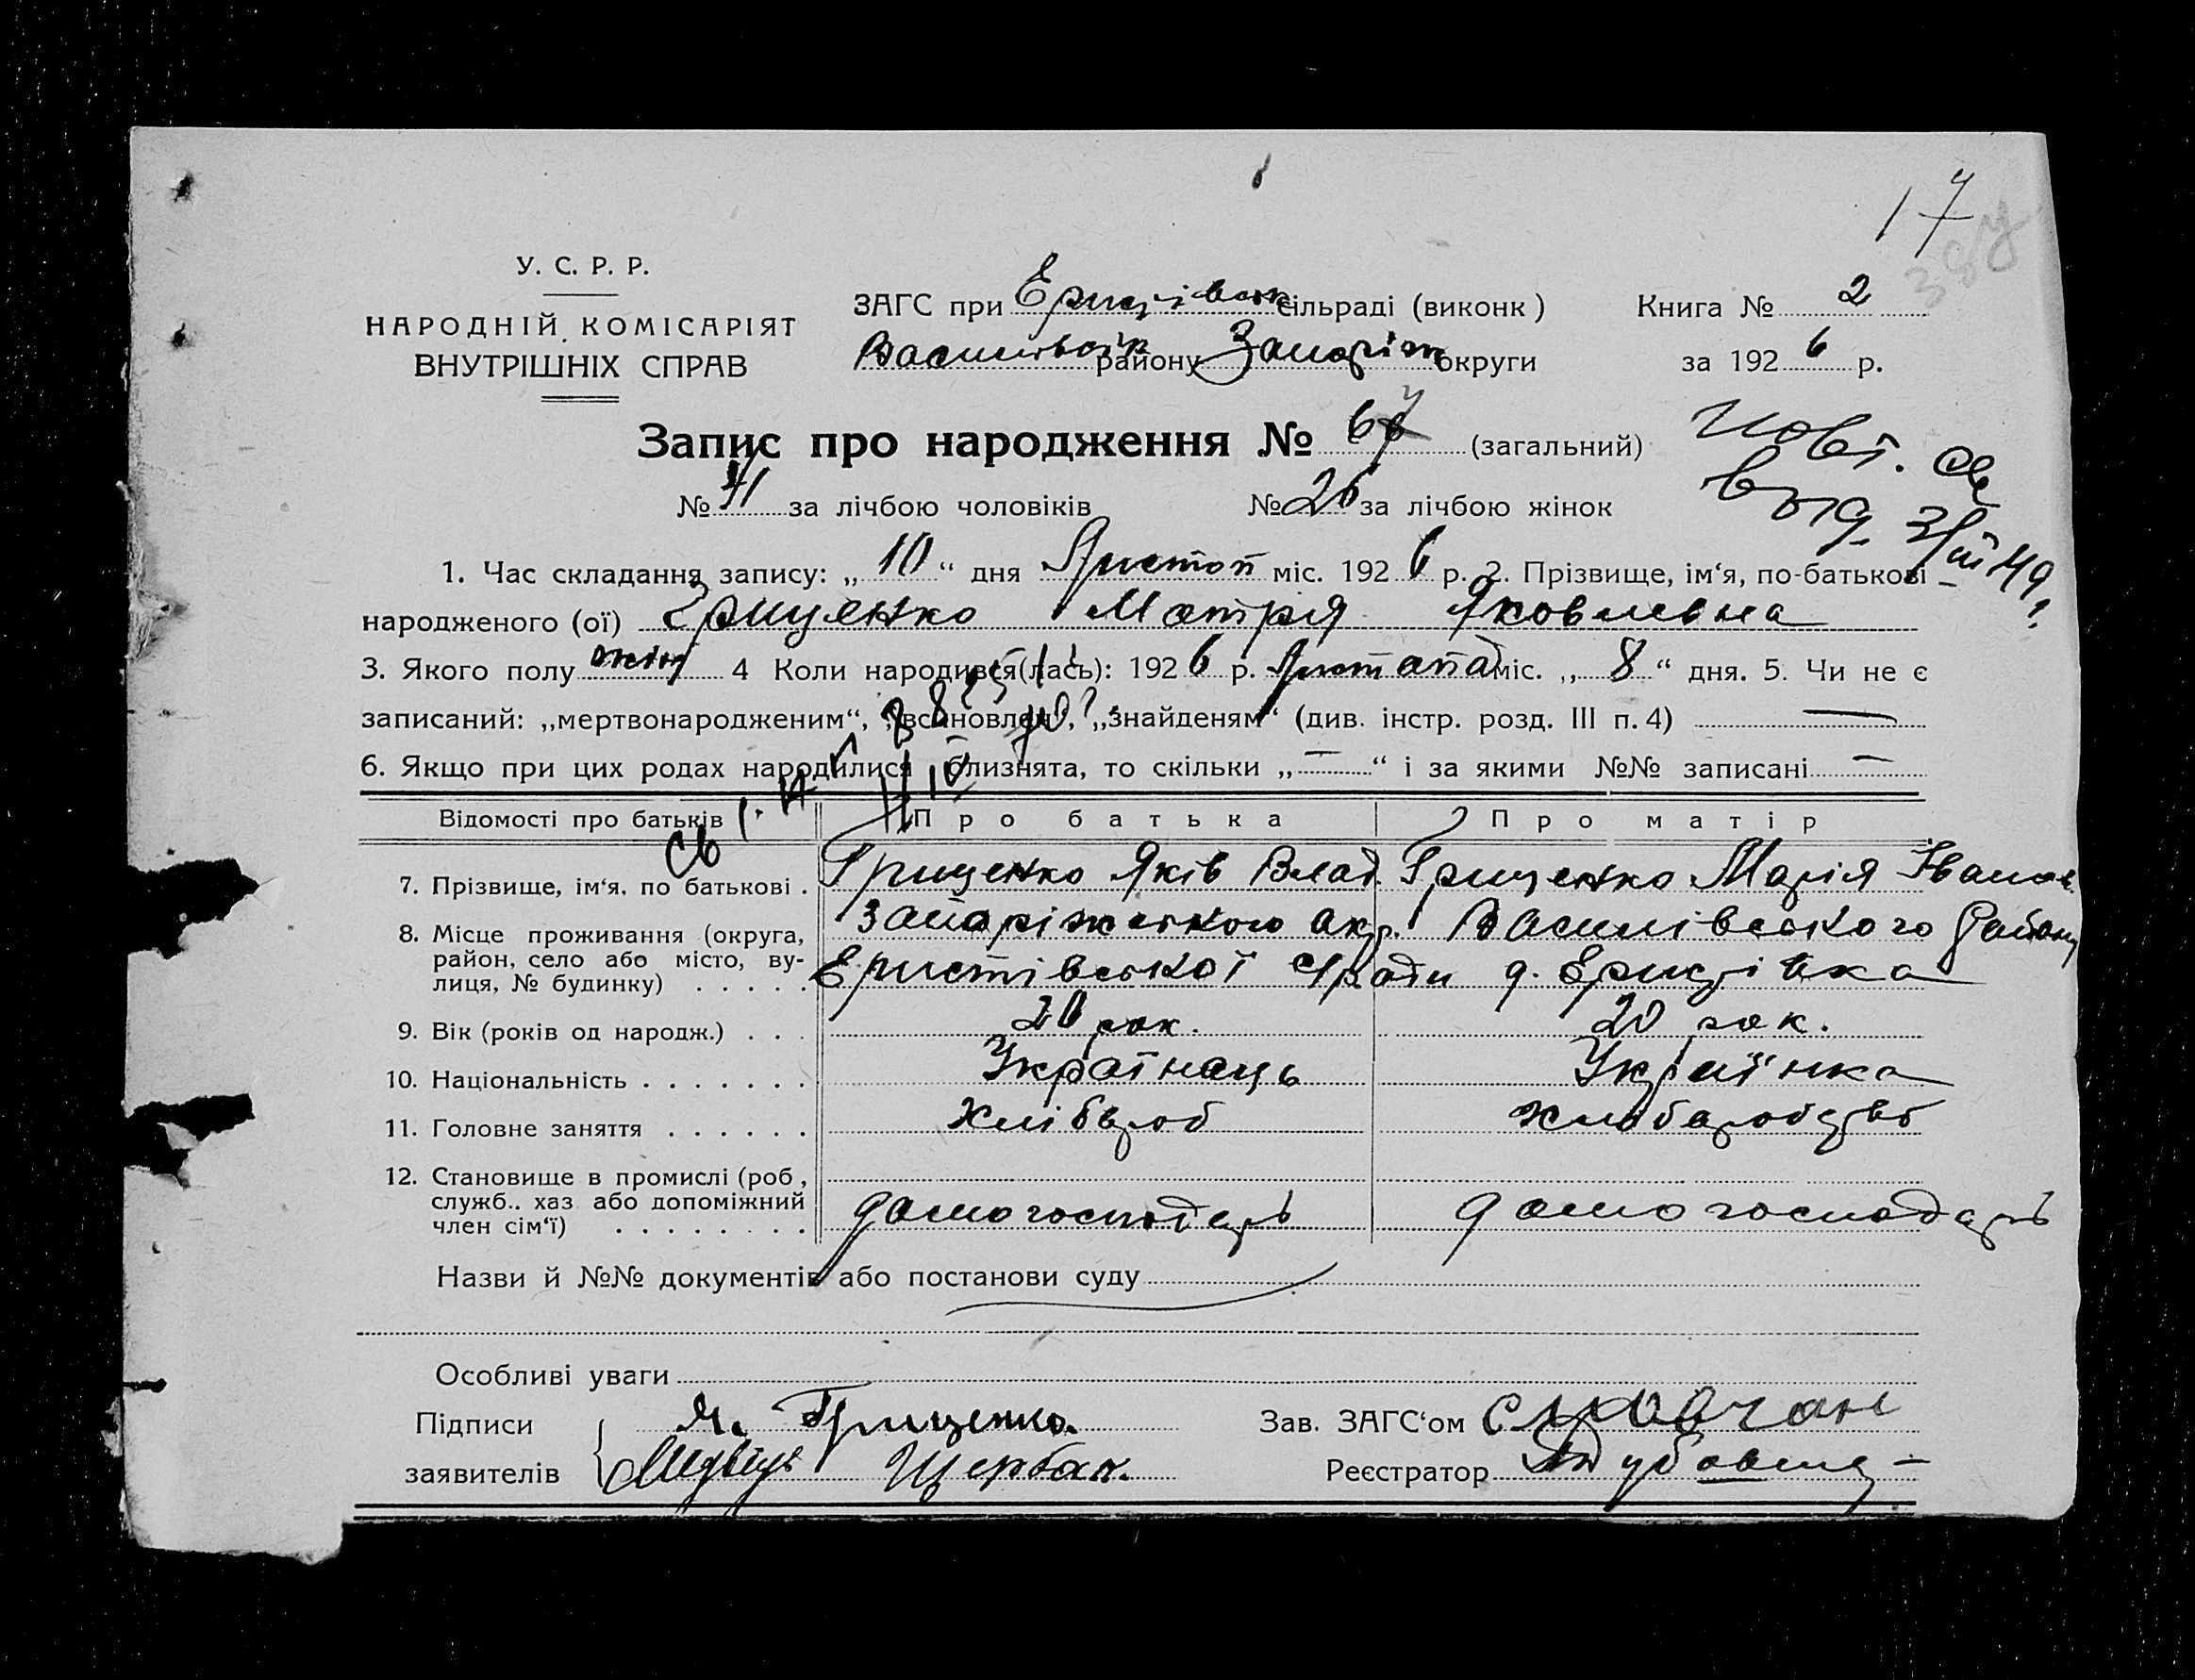 17
У. С. Р. Р.
НАРОДНІЙ КОМІСАРІЯТ
ВНУТРІШНІХ СПРАВ
ЗАГС при сільраді (виконк)
району округи
Книга № 2
за 1926 р.
Запис про народження № (загальний)
№ 41 за лічбою чоловіків № 26 за лічбою жінок
вид.
1. Час складання запису: „10“ дня Листоп міс. 1926 р. 2. Прізвище, ім‘я, по-батькові
народженого (ої) Грищенко Мотря Яковлевна
3. Якого полу жін 4 Коли народився(лась): 1926 р. Листопад міс. „8“ дня. 5. Чи не є
записаний: „мертвонародженим“, „встановлен“, „знайденям“ (див. інстр. розд. III п. 4) —
6. Якщо при цих родах народилися близнята, то скільки „—“ і за якими №№ записані —
Відомості про батьків Про батька Про матір
7. Прізвище, ім‘я, по батькові . Грищенко Яків Влад. Грищенко Марія Іванов.
8. Місце проживання (округа, район, село або місто, вулиця, № будинку) . . . . .
Запоріжського окр. Василівського Району
Еристівської с/ради
9. Вік (років од народж.) . . . рок. 20 рок.
10. Національність . . . . . . . Українець Українка
11. Головне заняття . . . . . . Хлібороб
12. Становище в промислі (роб, служб.. хаз або допоміжний член сім‘ї) . . . . . . . . домогосподарь домогосподарь
Назви й №№ документів або постанови суду
Особливі уваги
Підписи Я. Грищенко.
заявителів Щербак.
Зав. ЗАГС‘ом
Реєстратор